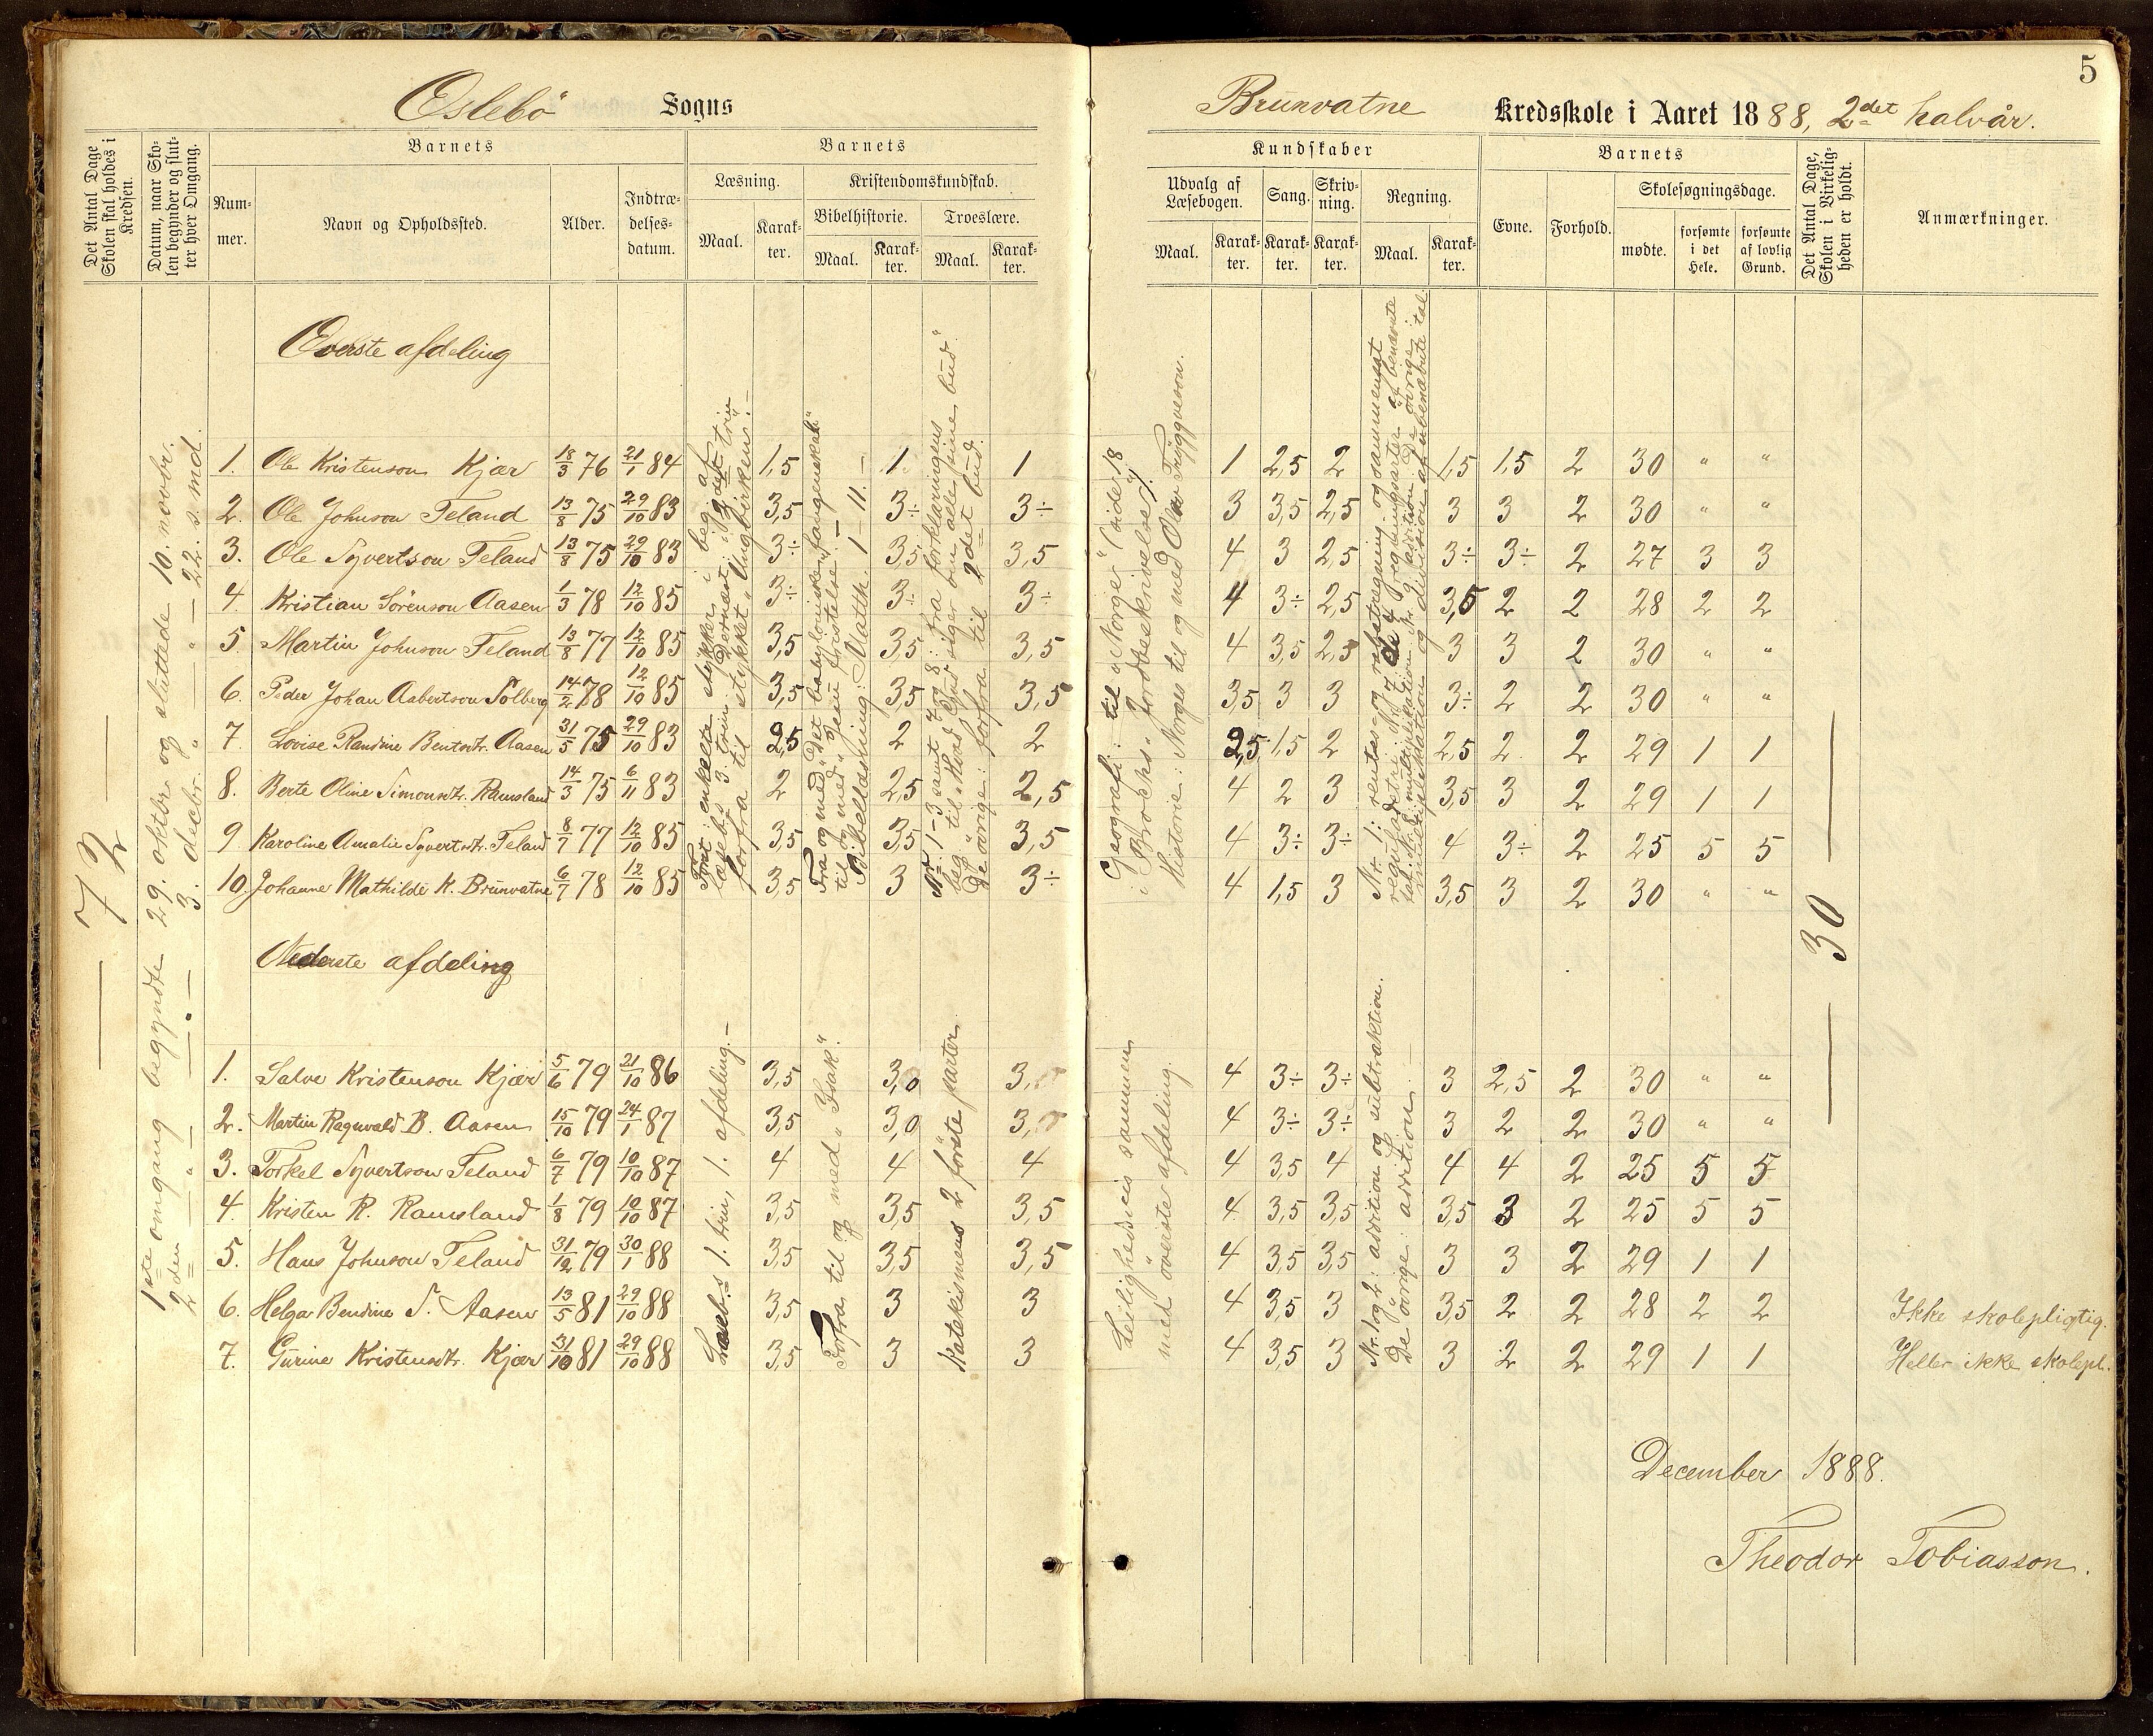 5
Øslebö Sogns
Brünvatne Kredsskole i Aaret 1888, 2det halvår.
Det Antal Dage Skolen skal holdes i Kredsen.
Datum, naar Skolen begynder og slutter hver Omgang.
Barnets
Nummer.
Navn og Opholdssted.
Alder.
Indtrædelsesdatum.
Barnets
Læsning.
Maal.
Karakter.
Kristendomskundskab.
Bibelhistorie.
Maal.
Karakter.
Troeslære.
Maal.
Karakter.
Kundskaber
Udvalg af Læsebogen.
Maal.
Karakter.
Sang.
Karakter.
Skrivning.
Karakter.
Regning.
Maal.
Karakter.
Barnets
Evne.
Forhold.
Skolesøgningsdage.
mødte.
forsømte i det Hele.
forsømte af lovlig Grund.
Det Antal Dage, Skolen i Virkeligheden er holdt.
Anmærkninger.
— 72 —
1ste omgang begyndte 29. oktbr. og sluttede 10. novbr.
2den — " — — " — 3. decbr. " — " — 22. s. md.
Øverste afdeling
1. Ole Kristenson Kjær 18/3 76 21/1 84 1,5 1 1 1 2,5 2 1,5 1,5 2 30 " "
2. Ole Johnson Feland 13/8 75 29/10 83 3,5 3÷ 3÷ 3 3,5 2,5 3 3 2 30 " "
3. Ole Syvertson Feland 13/8 75 29/10 83 3÷ 3,5 3,5 4 3 2,5 3÷ 3÷ 2 27 3 3
4. Kristian Sörenson Aasen 1/3 78 12/10 85 3÷ 3÷ 3÷ 4 3÷ 2,5 3,5 2 2 28 2 2
5. Martin Johnson Feland 13/8 77 12/10 85 3,5 3,5 3,5 4 3,5 2,5 3 3 2 30 " "
6. Peder Johan Aabertson Solberg 14/2 78 12/10 85 3,5 3,5 3,5 3,5 3 3 3÷ 2 2 30 " "
7. Lovise Randine Bentsdtr. Aasen 31/5 75 29/10 83 2,5 2 2 2,5 1,5 2 2,5 2 2 29 1 1
8. Berte Oline Simonsdtr. Ramsland 14/3 75 6/11 83 2 2,5 2,5 4 2 3 3,5 3 2 29 1 1
9 Karoline Amalie Syvertsdtr. Feland 8/7 77 12/10 85 3,5 3,5 3,5 4 3÷ 3÷ 4 3÷ 2 25 5 5
10. Johanne Mathilde K. Brünvatne 6/7 78 12/10 85 3,5 3 3÷ 4 1,5 3 3,5 3 2 30 " "
enkelte stykker i beg. af
læseb.s 3. trin.
forfra til stykket "Ungbirken". —
Fra og med "Det babyloniske fangenskab"
til og med "Jesu fristelse." —
Bibellæsning: Matth. 1 — 11. —
Nr. 1-3 samt 7 og 8: fra forklaringens
beg. til "Hvad Gud siger om alle sine bud".
De övrige: forfra til 2det bud.
Geografi: til "Norge" (side 18
i Brochs "Jordbeskrivelse").
Historie: Norges til og med Olav Tryggveson.
Nr. 1: rentes- og rabatregning og sammensat
reguladetri.
— 30 —
Nederste afdeling
1. Salve Kristenson Kjær 5/6 79 21/10 86 3,5 3,0 3,0 4 3÷ 3÷ 3 2,5 2 30 " "
2. Martin Ragnvald B. Aasen 15/10 79 24/1 87 3,5 3,0 3,0 4 3÷ 3÷ 3 2 2 30 " "
3. Torkel Syvertson Feland 6/7 79 10/10 87 4 4 4 4 3,5 4 4 4 2 25 5 5
4. Kristen R. Ramsland 1/8 79 10/10 87 3,5 3,5 3,5 4 3,5 3,5 3,5 3 2 25 5 5
5. Hans Johnson Feland 31/12 79 30/1 88 3,5 3,5 3,5 4 3,5 3,5 3 3 2 29 1 1
6. Helga Bendine S. Aasen 13/5 81 29/10 88 3,5 3 3 4 3,5 3 3,5 2 2 28 2 2 Ikke skolepligtig.
7. Gurine Kristensdtr. Kjær 31/10 81 29/10 88 3,5 3 3 4 3,5 3 3 2 2 29 1 1 Heller ikke skolepl.
Læseb.s 1. trin, 1. afdeling. —
Forfra til og med "Isak".
Katekismens 2 förste parter
Leilighedsvis sammen
med överste afdeling.
Nr. 1 og 2: addition og subtraktion.
De övrige: addition.
December 1888.
Theodor Tobiasson.